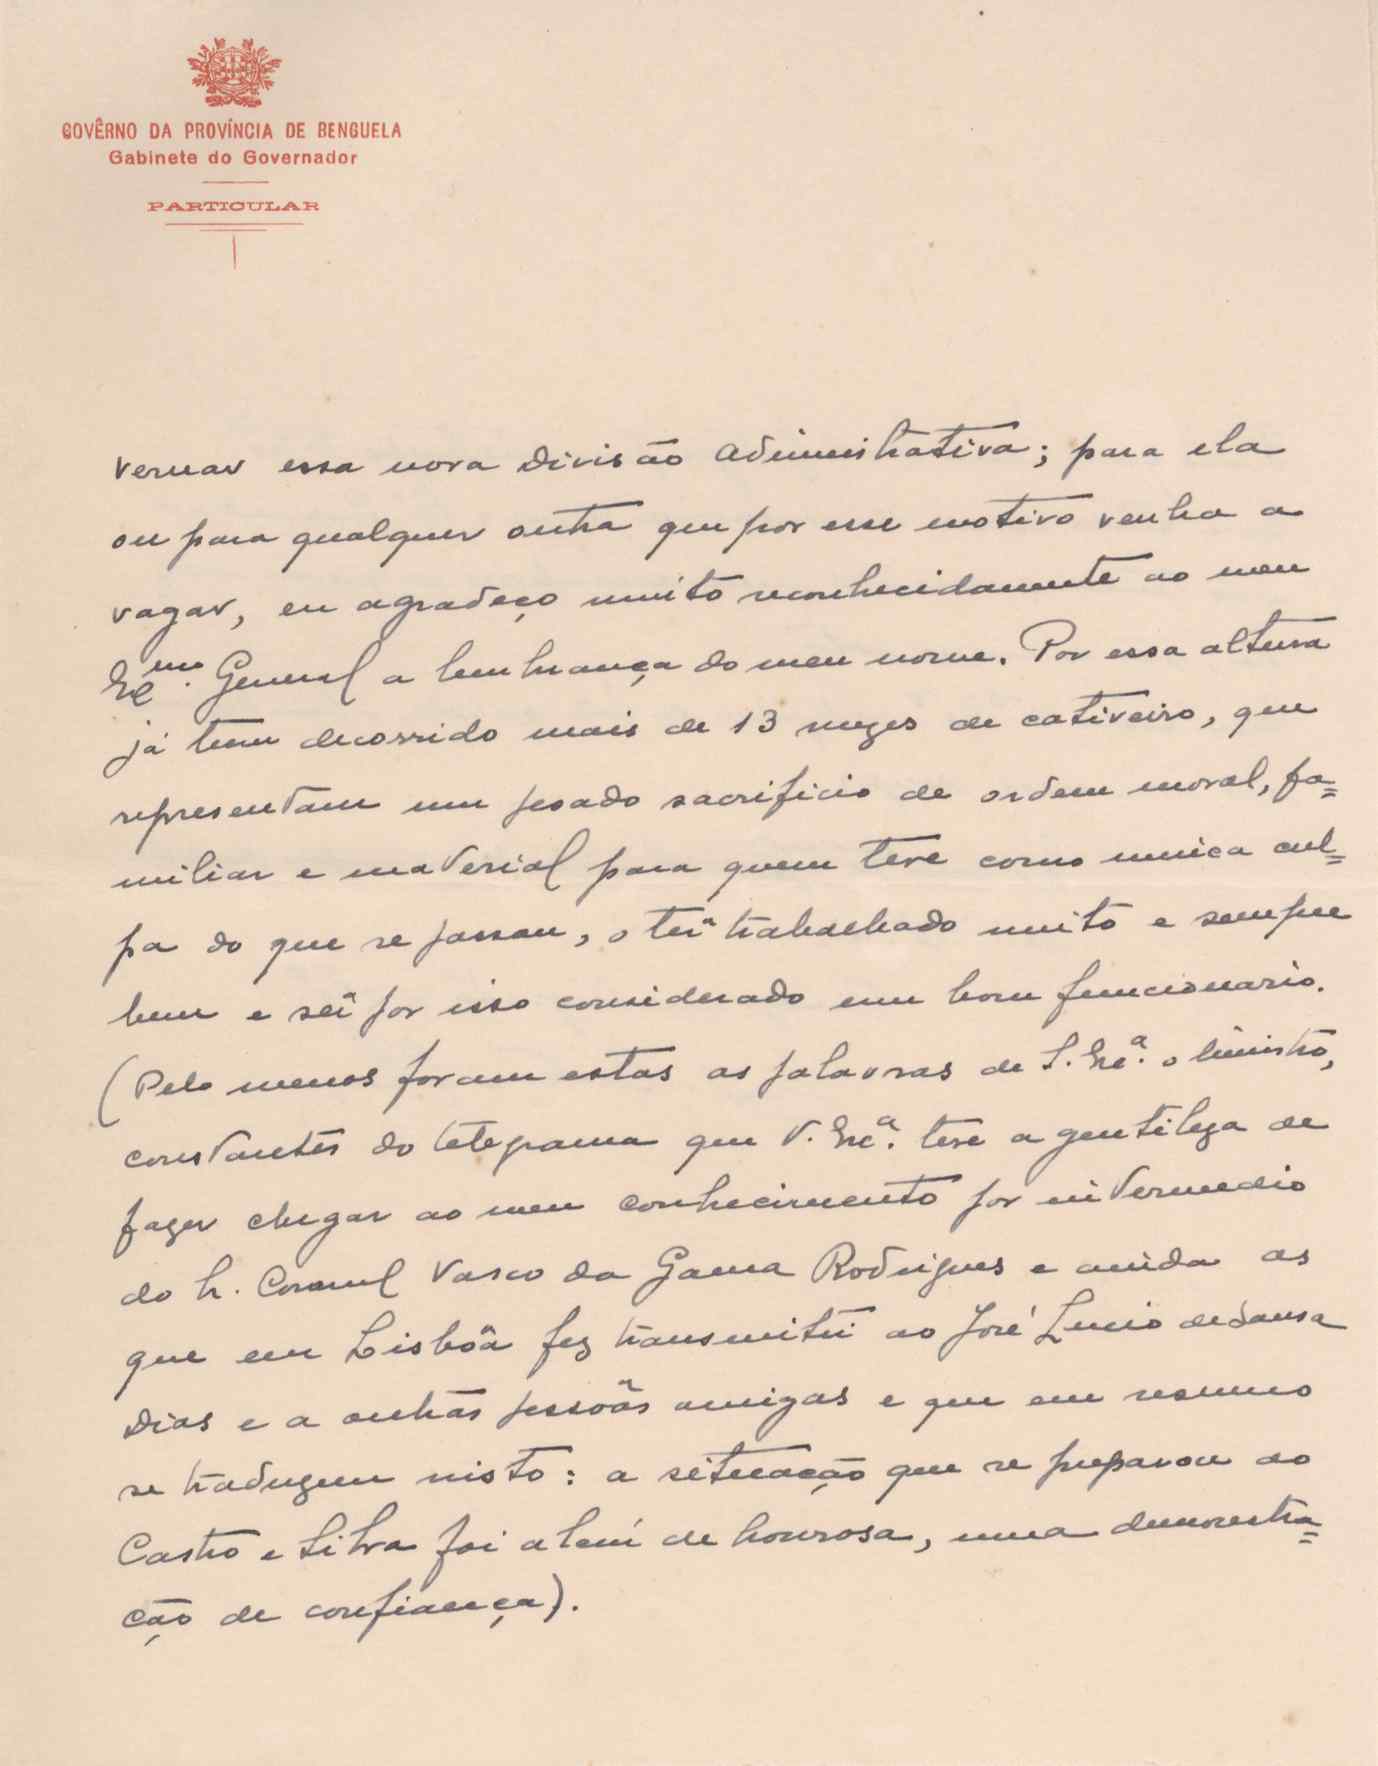 GOVÊRNO DA PROVÍNCIA DE BENGUELA
Gabinete do Governador
PARTICULAR
vernar essa nova Divisão Administrativa; para ela
ou para qualquer outra que por esse motivo venha a
vagar, eu agradeço muito reconhecidamente ao meu
Exmo. General a lembrança do meu nome. Por essa altura
já tem decorrido mais de 13 mezes de cativeiro, que
representam um pesado sacrificio de ordem moral, fa=
miliar e material para quem teve como unica cul=
pa do que se passou, o ter trabalhado muito e sempre
bem e ser por isso considerado um bom funcionario.
(Pelo menos foram estas as palavras de S. Exª. o Ministro,
constantes do telegrama que V. Exª. teve a gentileza de
fazer chegar ao meu conhecimento por intermedio
do Sr. Coronel Vasco da Gama Rodrigues e ainda as
que em Lisbôa fez transmitir ao José Lucio de Sousa
Dias e a outras pessôas amigas e que em resumo
se traduzem nisto: a situação que se preparou ao
Castro e Silva foi alem de honrosa, uma demonstra=
ção de confiança).